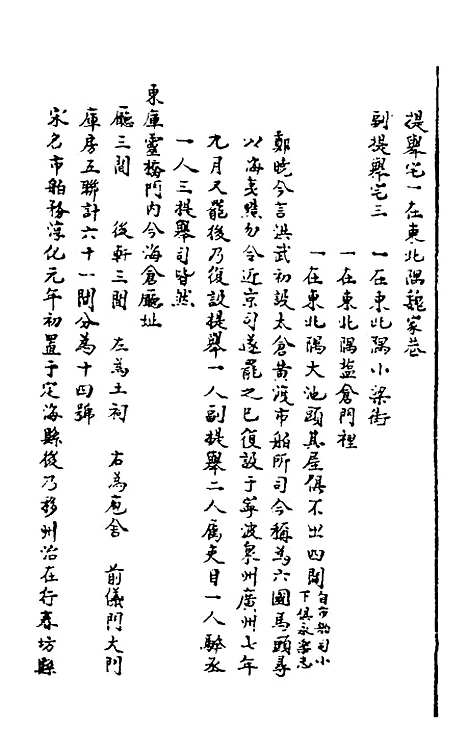 提舉宅一在東北隅魏家巷
副提舉宅三　一在東北隅小梁街
一在東北隅盐倉門裡
一在東北隅大池頭其屋俱不出四間自市舶司小下俱永樂志
鄭曉今言洪武初設太倉黄渡市舶所司今稱為六國馬頭尋
以海夷黠勿令近京司遂罷之已復設于寧波泉州廣州七年
九月又罷後乃復設提舉一人副提舉二人属吏目一人驛丞
一人三提舉司皆然
東庫靈橋門内今海倉廳址
廳三間　後軒三間　左為土祠　右為庖舍　前儀門大門
庫房五聯計六十一間分為十四號
宋名市舶務淳化元年初置于定海縣後乃移州治在行春坊縣